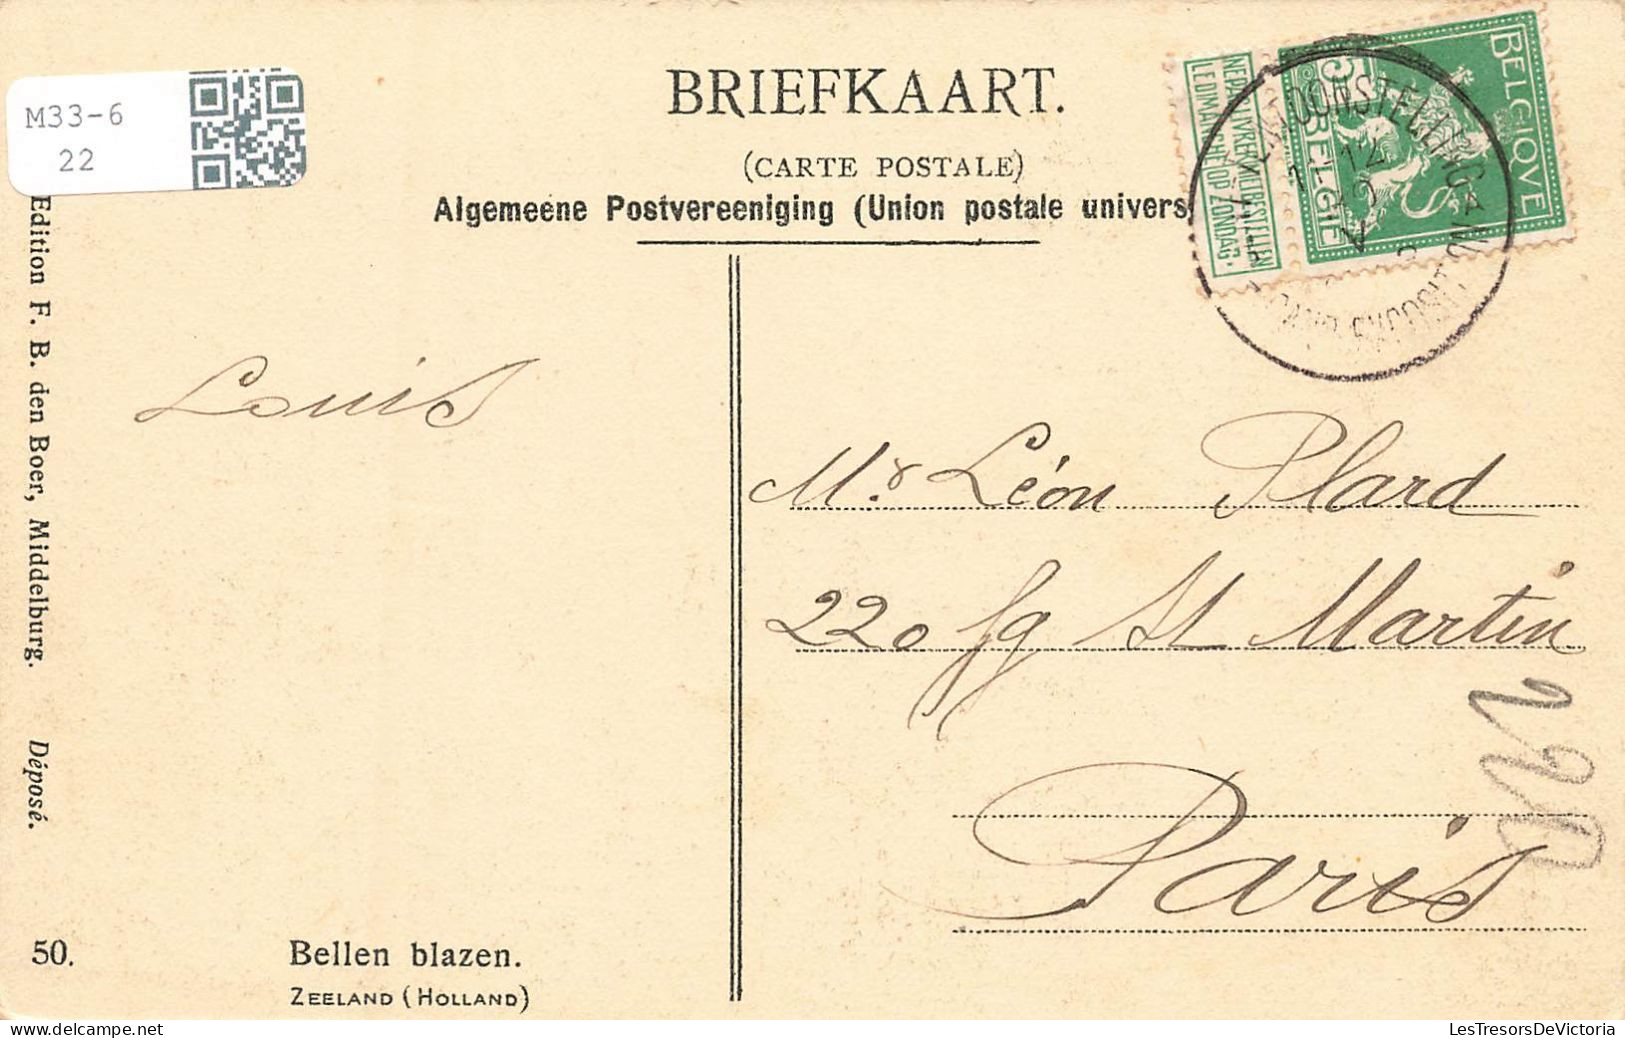 M33-6
22
BRIEFKAART.
(CARTE POSTALE)
Algemeene Postvereeniging (Union postale univers
BELGIQVE
5
BELGIË
NE PAS LIVRER LE DIMANCHE
NIET BESTELLEN OP ZONDAG.
TOONSTELLING
12
EXPOSITION
Edition F. B. den Boer, Middelburg. Déposé.
Louis
Mr. Léon Plard
220 fg St Martin
Paris
50.
Bellen blazen.
ZEELAND (HOLLAND)
LesTresorsDeVictoria